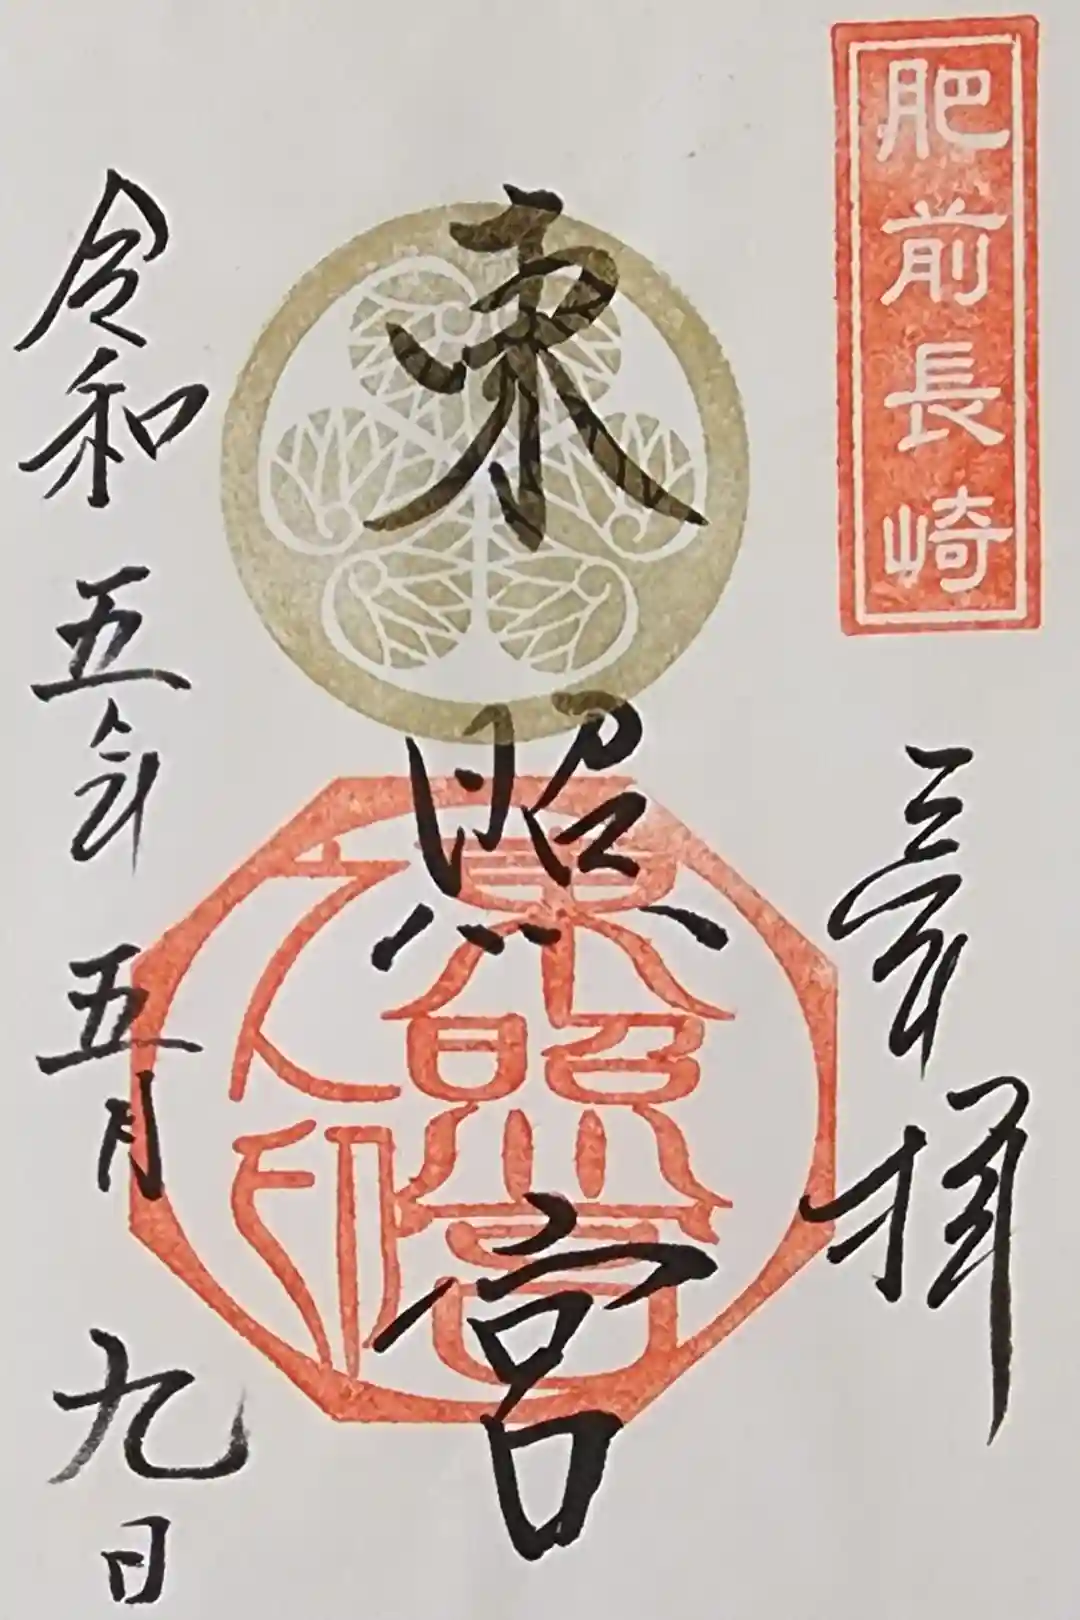 肥前長崎
奉拝
東照宮
東照宮
之印
令和五年五月九日